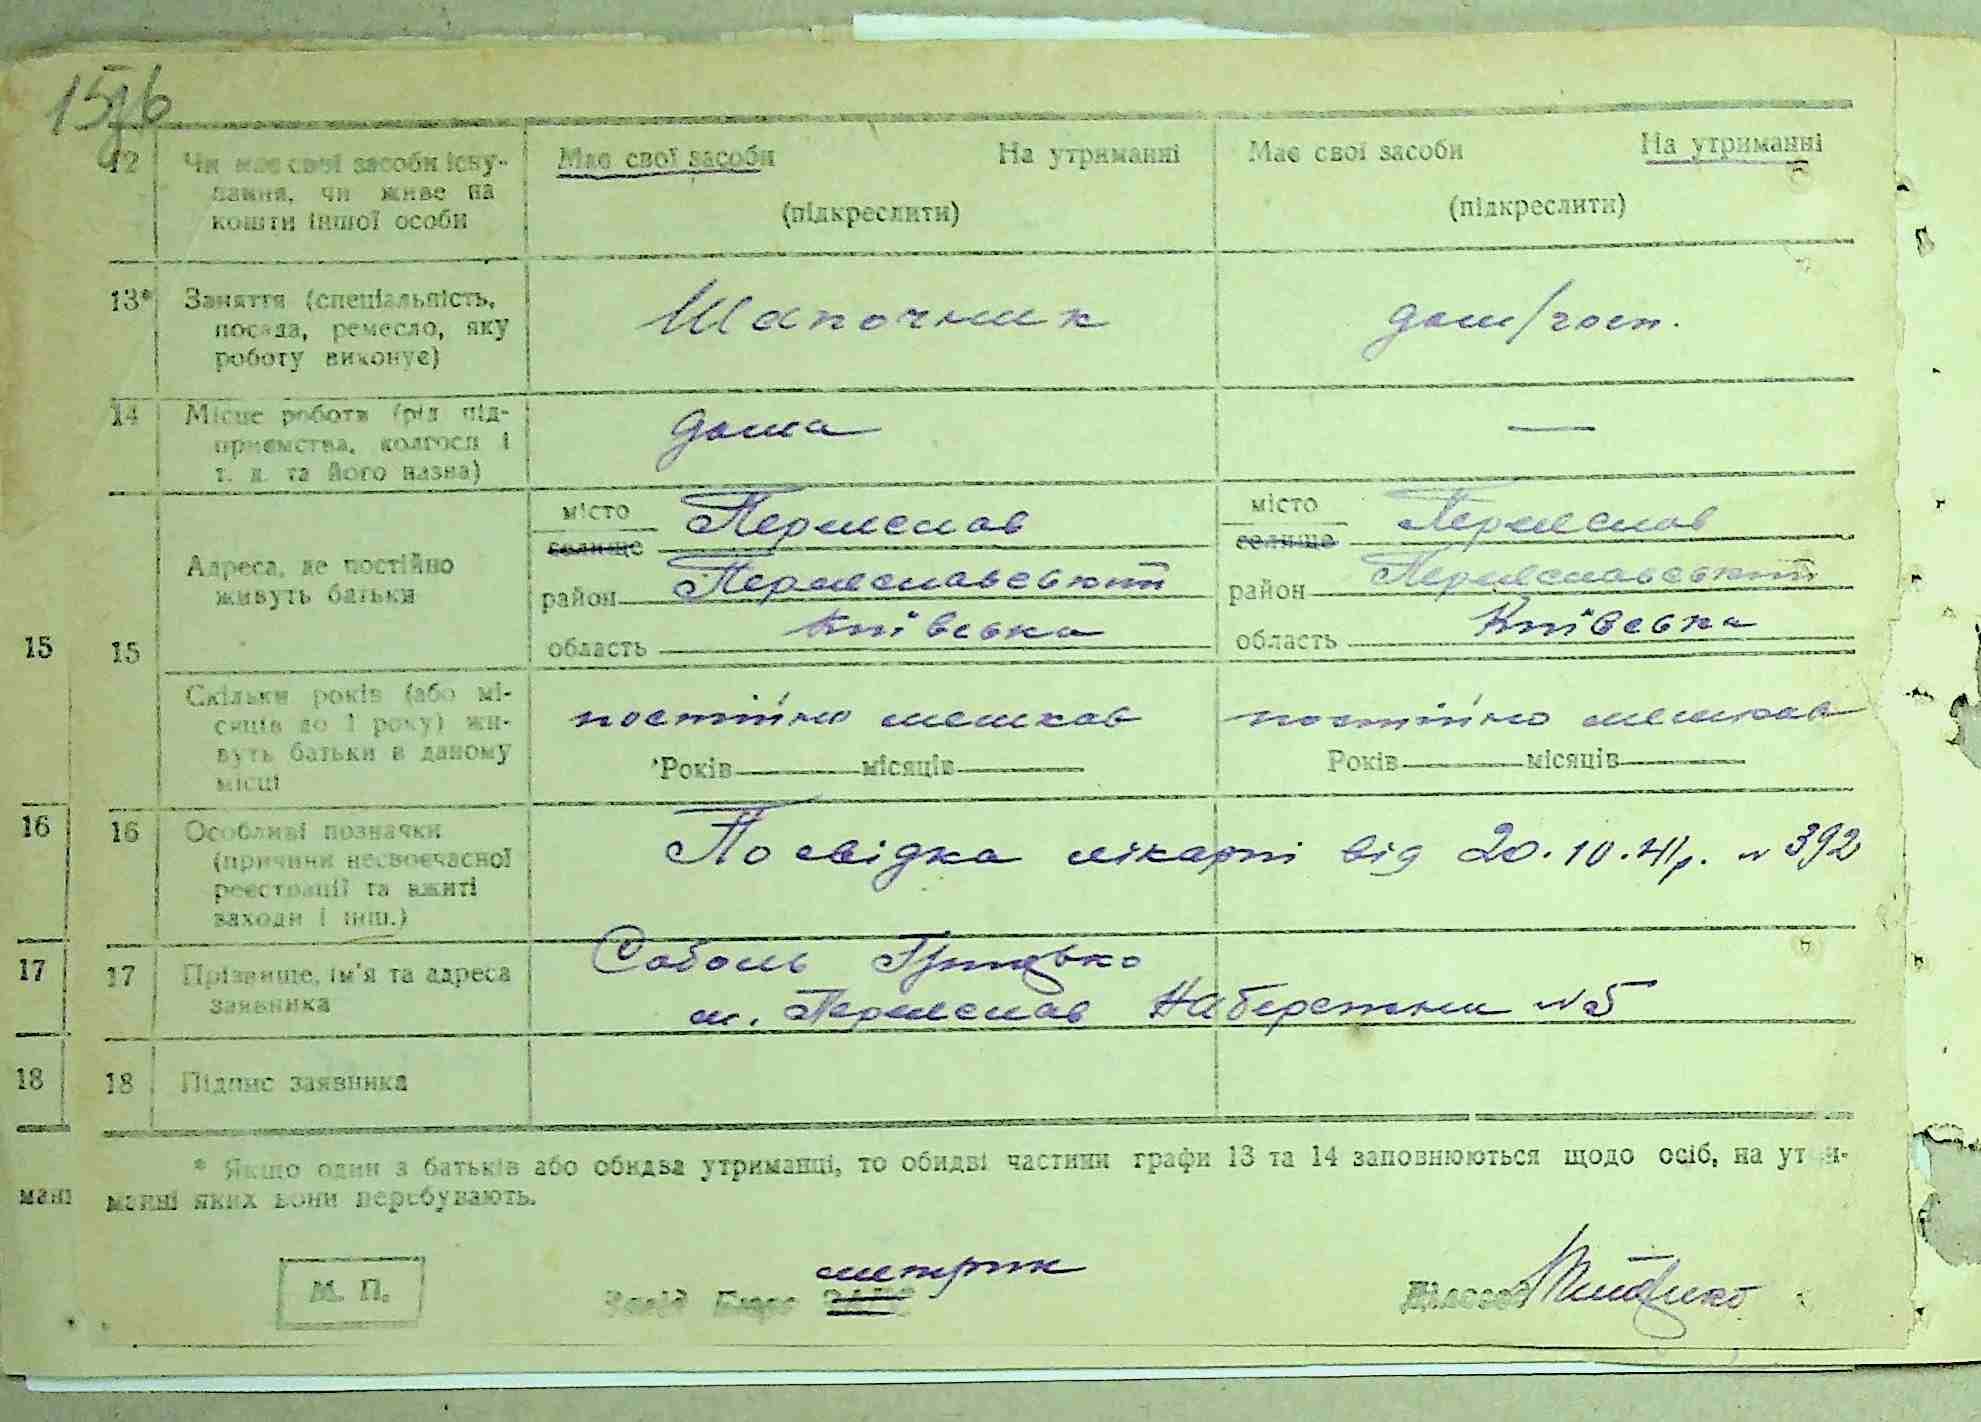 12 Чи має свої засоби існу-
вання, чи живе на
кошти іншої особи
Має свої засоби На утриманні
(підкреслити)
Має свої засоби На утриманні
(підкреслити)
13* Заняття (спеціальність,
посада, ремесло, яку
роботу виконує)
Шапочник
дом/госп.
14 Місце роботи (рід під-
приємства, колгосп і
т. д. та його назва)
дома
—
15 15 Адреса, де постійно
живуть батьки
місто Переяслав
селище
район Переяславський
область Київська
місто Переяслав
селище
район Переяславський
область Київська
Скільки років (або мі-
сяців до 1 року) жи-
вуть батьки в даному
місці
постійно мешкав
Років місяців
постійно мешкав
Років місяців
16 16 Особливі позначки
(причини несвоєчасної
реєстрації та вжиті
заходи і інш.)
Посвідка лікарні від 20.10.41р. № 392
17 17 Прізвище, ім'я та адреса
заявника
Соболь
м. Переяслав Набережна №5
18 18 Підпис заявника
* Якщо один з батьків або обидва утриманці, то обидві частини графи 13 та 14 заповнюються щодо осіб, на утри-
мані манні яких вони перебувають.
метрик
М. П. Завід Бюро ЗАГС Діловод